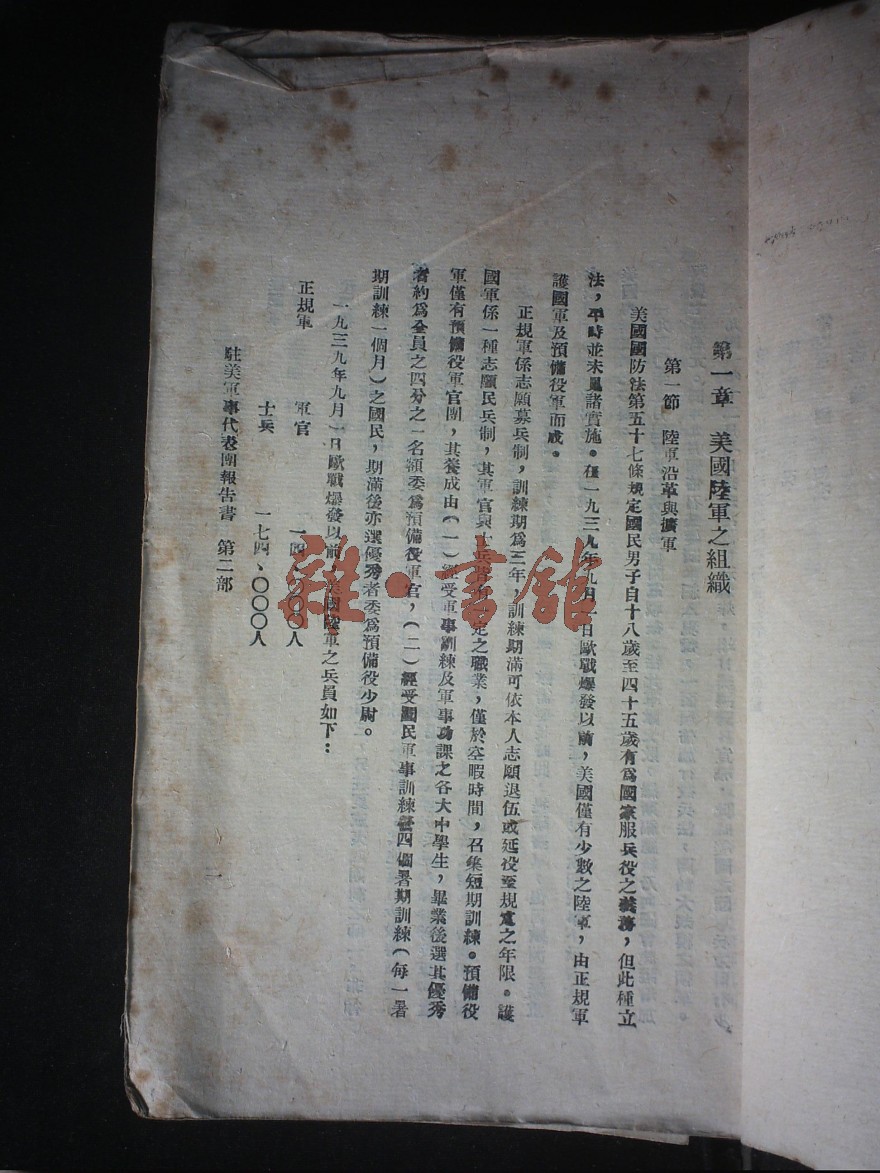 第一章　美國陸軍之組織
第一節　陸軍沿革與擴軍
美國國防法第五十七條規定國民男子自十八歲至四十五歲有爲國家服兵役之義務，但此種立
法，平時並未見諸實施。在一九三九年九月一日歐戰爆發以前，美國僅有少數之陸軍，由正規軍
護國軍及預備役軍而成。
正規軍係志願募兵制，訓練期爲三年，訓練期滿可依本人志願退伍或延役至規定之年限。護
國軍係一種志願民兵制，其軍官與士兵皆有一定之職業，僅於空暇時間，召集短期訓練。預備役
軍僅有預備役軍官團，其養成由（一）經受軍事訓練及軍事功課之各大中學生，畢業後選其優秀
者約爲全員之四分之一名額委爲預備役軍官，（二）經受國民軍事訓練營四個暑期訓練（每一暑
期訓練一個月）之國民，期滿後亦選優秀者委爲預備役少尉。
一九三九年九月一日歐戰爆發以前，美國陸軍之兵員如下：
正規軍　軍官　一四、〇〇〇人
士兵　一七四、〇〇〇人
駐美軍事代表團報告書　第二部
一
雜·書館